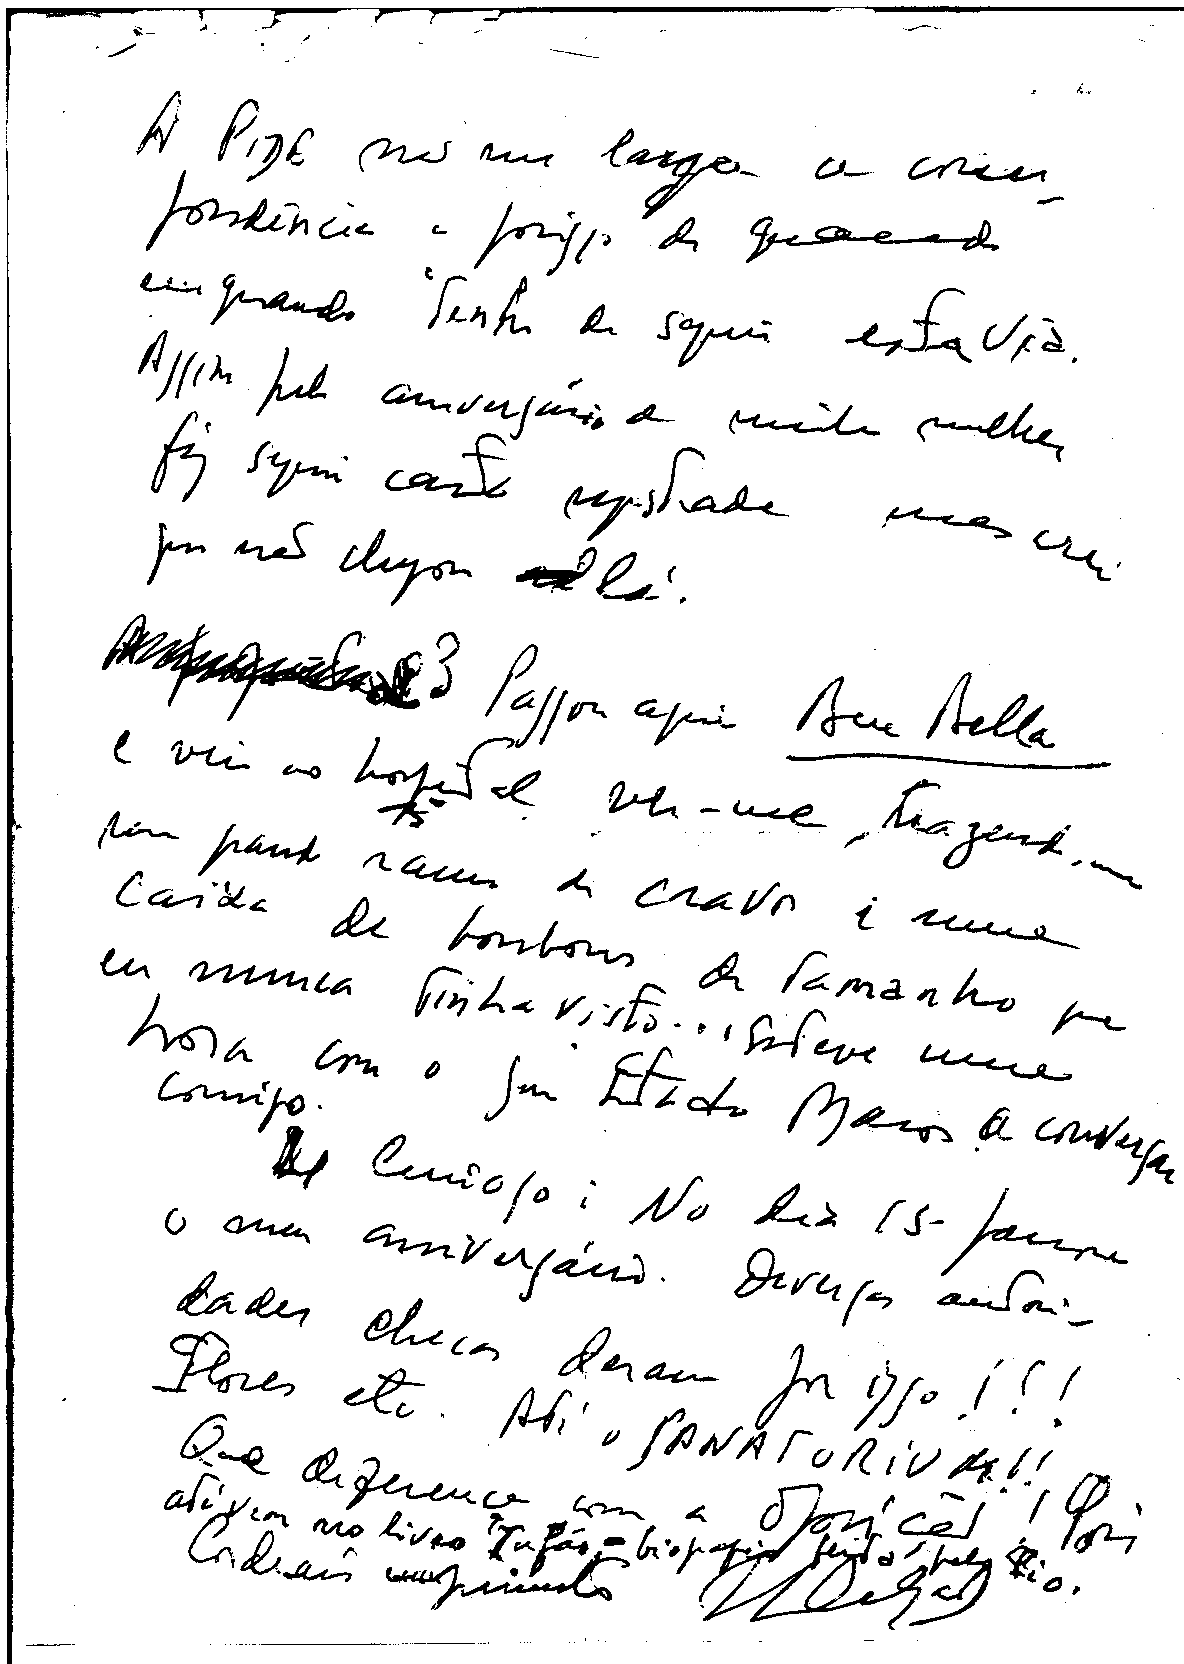 A PIDE não me larga a corres-
pondência e por isso de quando
em quando tenho de seguir esta via.
Assim pelo aniversário de minha mulher
fiz seguir carta registada mas crei
que não chegou lá.
3 Passou aqui Ben Bella
e veio ao hospital ver-me, trazendo-me
um grande ramo de cravos e uma
caixa de bombons de tamanho que
eu nunca tinha visto... Esteve uma
hora com o seu Estado Maior a conversar
comigo.
Curioso: No dia 15 passou
o meu aniversário. Diversas autori-
dades checas deram por isso!!!
Flores etc. Até o SANATORIUM!!
Que diferença com a oposição! Pois
até vem no livro biografia feita pelo
Cordeais cumprimentos